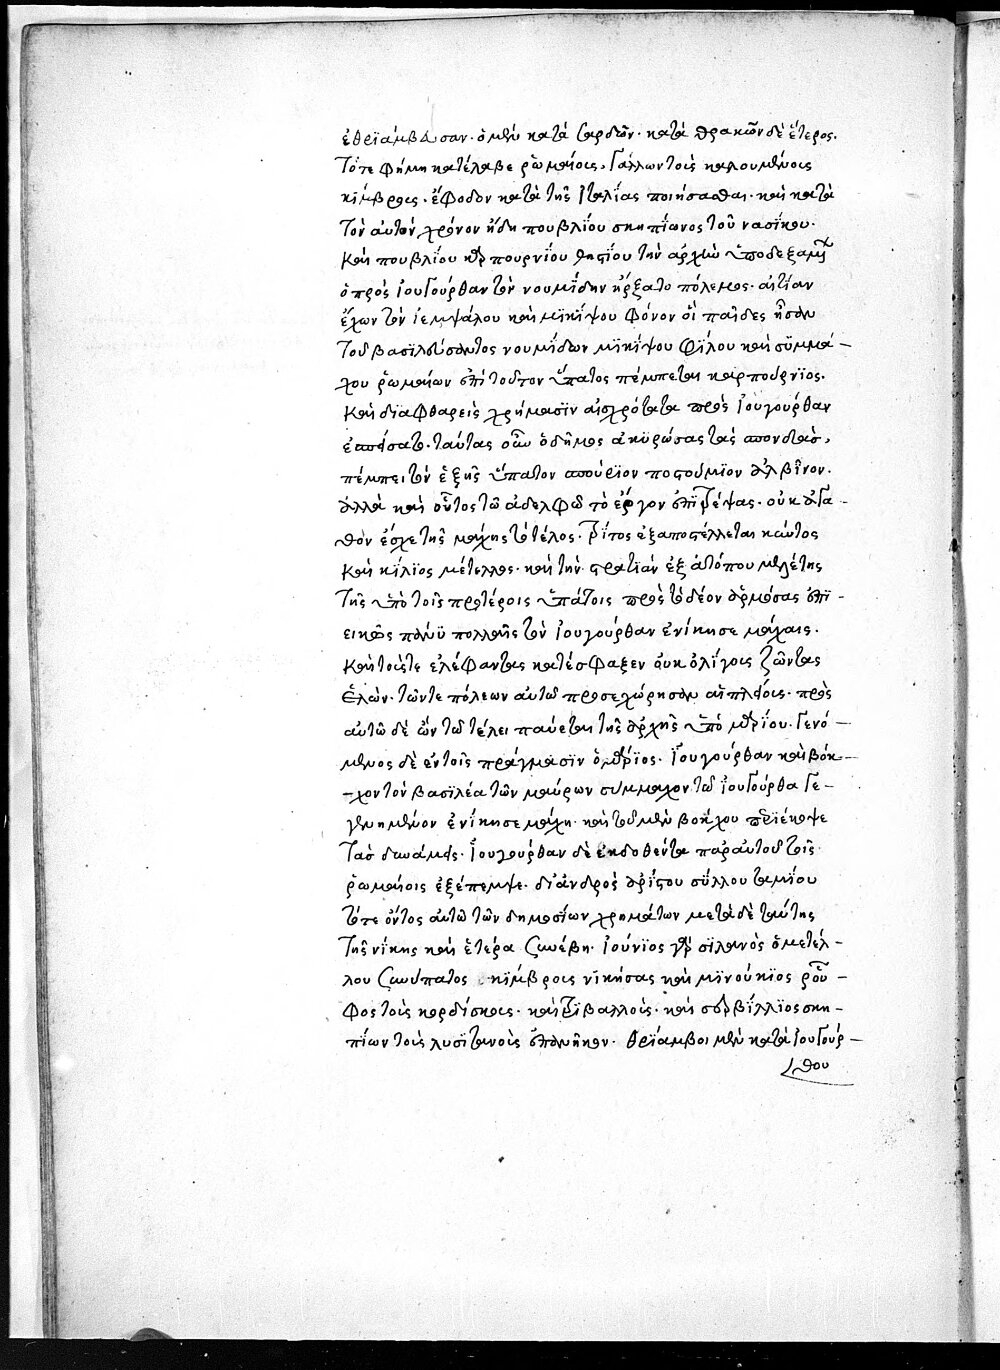 ἐθρϊάμβευσαν· ὁ μὲν κατὰ σαρδῶν· κατὰ θρακῶν δὲ ἕτερος.
Τότε φήμη κατέλαβε ῥωμαίοις, Γάλλων τοὺς καλουμένους
κίμβρους· ἔφοδον κατὰ τῆς Ἰταλίας ποιήσασθαι· καὶ κατὰ
τὸν αὐτὸν χρόνον ἤδη πουβλίου σκηπίωνος τοῦ νασίκου·
καὶ πουβλίου καλπουρνίου βηστίου τὴν ἀρχὴν ὑποδεξαμένων
ὁ πρὸς ἰουγούρθαν τὸν νουμίδην ἤρξατο πόλεμος· αἰτίαν
ἔχων τὸν ἰεμψάλου καὶ μικίψου φόνον οἳ παῖδες ἦσαν
τοῦ βασιλεύσαντος νουμίδων μϊκίψου φίλου καὶ συμμά-
χου ῥωμαίων ἐπὶ τοῦτον ὕπατος πέμπεται καρπούρνϊος·
καὶ διαφθαρεὶς χρήμασϊν αἰσχρότατα πρὸς ἰουγούρθαν
ἐσπείσατο· ταύτας οὖν ὁ δῆμος ἀκυρώσας τὰς σπονδὰς,
πέμπει τὸν ἑξῆς ὕπατον σπούριον ποστούμϊον ἀλβῖνον·
ἀλλὰ καὶ οὗτος τῶ ἀδελφῶ τὸ ἔργον ἐπϊτρέψας· οὐκ ἀγα-
θὸν ἔσχε τῆς μάχης τὸ τέλος· τρίτος ἐξαποστέλλεται κώϊντος
καικίλϊος μέτελλος· καὶ τὴν στρατιὰν ἐξ ἀτόπου μελέτης
τῆς ὑπὸ τοῖς προτέροις ὑπάτοις πρὸς τὸ δέον ἁρμόσας ἐπϊ-
εικῶς πάνυ πολλαῖς τὸν ἰουγούρθαν ἐνίκησε μάχαις·
καὶ τούς τε ἐλέφαντας κατέσφαξεν οὐκ ὀλίγους ζῶντας
ἑλών· τῶν τε πόλεων αὐτῶ προσεχώρησαν αἱ πλείους· πρὸς
αὐτῶ δὲ ὢν τῶ τέλει παύεται τῆς ἀρχῆς ὑπὸ μαρίου· Γενό-
μενος δὲ ἐν τοῖς πράγμασϊν ὁ μάρϊος· Ἰουγούρθαν καὶ βόκ-
χον τὸν βασιλέα τῶν μαύρων σύμμαχον τῶ ἰουγούρθα γε-
γενημένον ἐνίκησε μάχη· καὶ τοῦ μὲν βοκχου περϊέκοψε
τὰς δυνάμεις· Ἰουγούρθαν δὲ ἐκδοθέντα παρ αὐτοῦ τοῖς
ῥωμαίοις ἐξέπεμψε· δι ἀνδρὸς ἀρίστου σύλλου ταμίου
τότε ὄντος αὐτῶ τῶν δημοσίων χρημάτων μετὰ δὲ ταύτης
τῆς νίκης καὶ ἑτέρα συνέβη· Ἰούνϊος γὰρ σϊλανὸς ὁ μετέλ-
λου συνύπατος κϊμβρους νϊκήσας καὶ μϊνούκϊος ῥοῦ-
φος τοὺς κορδίσκους· καὶ τρϊβαλλούς· καὶ σερβίλλϊος σκη-
πίων τοὺς λυσϊτανοὺς ἐπανῆκον· θρϊαμβοι μὲν κατὰ ἰουγούρ-
θου